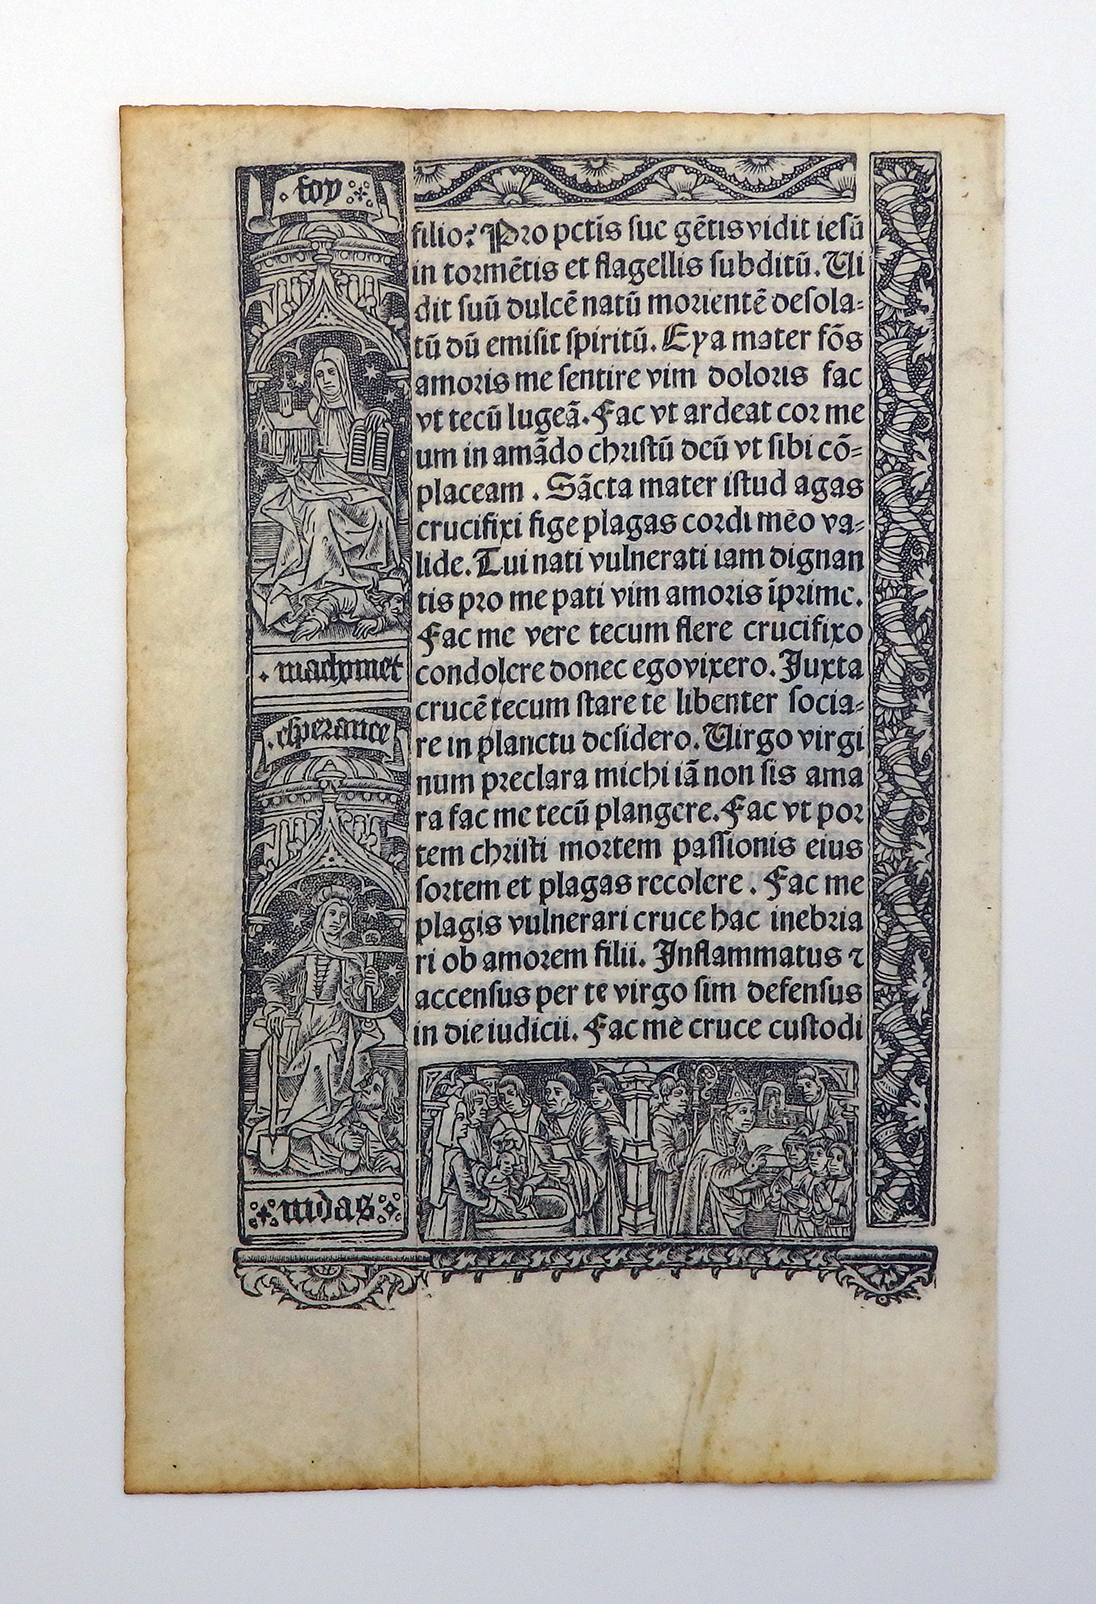 foy
machomet
esperance
nidas
filio? Pro pctīs sue gētis vidit iesū
in tormētis et flagellis subditū. Ui
dit suū dulcē natū morientē desola-
tū dū emisit spiritū. Eya mater fōs
amoris me sentire vim doloris fac
vt tecū lugeā. Fac vt ardeat cor me
um in amādo christū deū vt sibi cō-
placeam. Sācta mater istud agas
crucifixi fige plagas cordi meo va-
lide. Tui nati vulnerati iam dignan
tis pro me pati vim amoris īprime.
Fac me vere tecum flere crucifixo
condolere donec ego vixero. Juxta
crucē tecum stare te libenter socia-
re in planctu desidero. Uirgo virgi
num preclara michi iā non sis ama
ra fac me tecū plangere. Fac vt por
tem christi mortem passionis eius
sortem et plagas recolere. Fac me
plagis vulnerari cruce hac inebria
ri ob amorem filii. Inflammatus ⁊
accensus per te virgo sim defensus
in die iudicii. Fac me cruce custodi